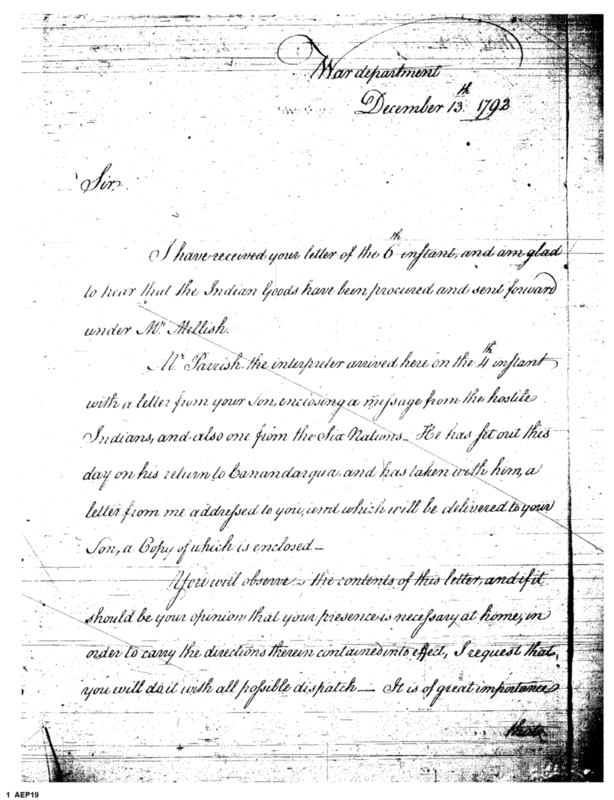 War department
December 13th 1792
Sir,
I have received your letter of the 6th instant, and am glad
to hear that the Indian Goods have been procured and sent forward
under Mr. Mellish.
Mr. Parrish the interpreter arrived here on the 4th instant
with a letter from your Son, enclosing a message from the hostile
Indians, and also one from the Six Nations_ He has set out this
day on his return to Canandarqua and has taken with him, a
letter from me addressed to you, and which will be delivered to your
Son, a Copy of which is enclosed_
You will observe the contents of this letter, and if it
should be your opinion that your presence is necessary at home, in
order to carry the directions therein contained into effect, I request that
you will do it with all possible dispatch_ It is of great importance
1 AEP19